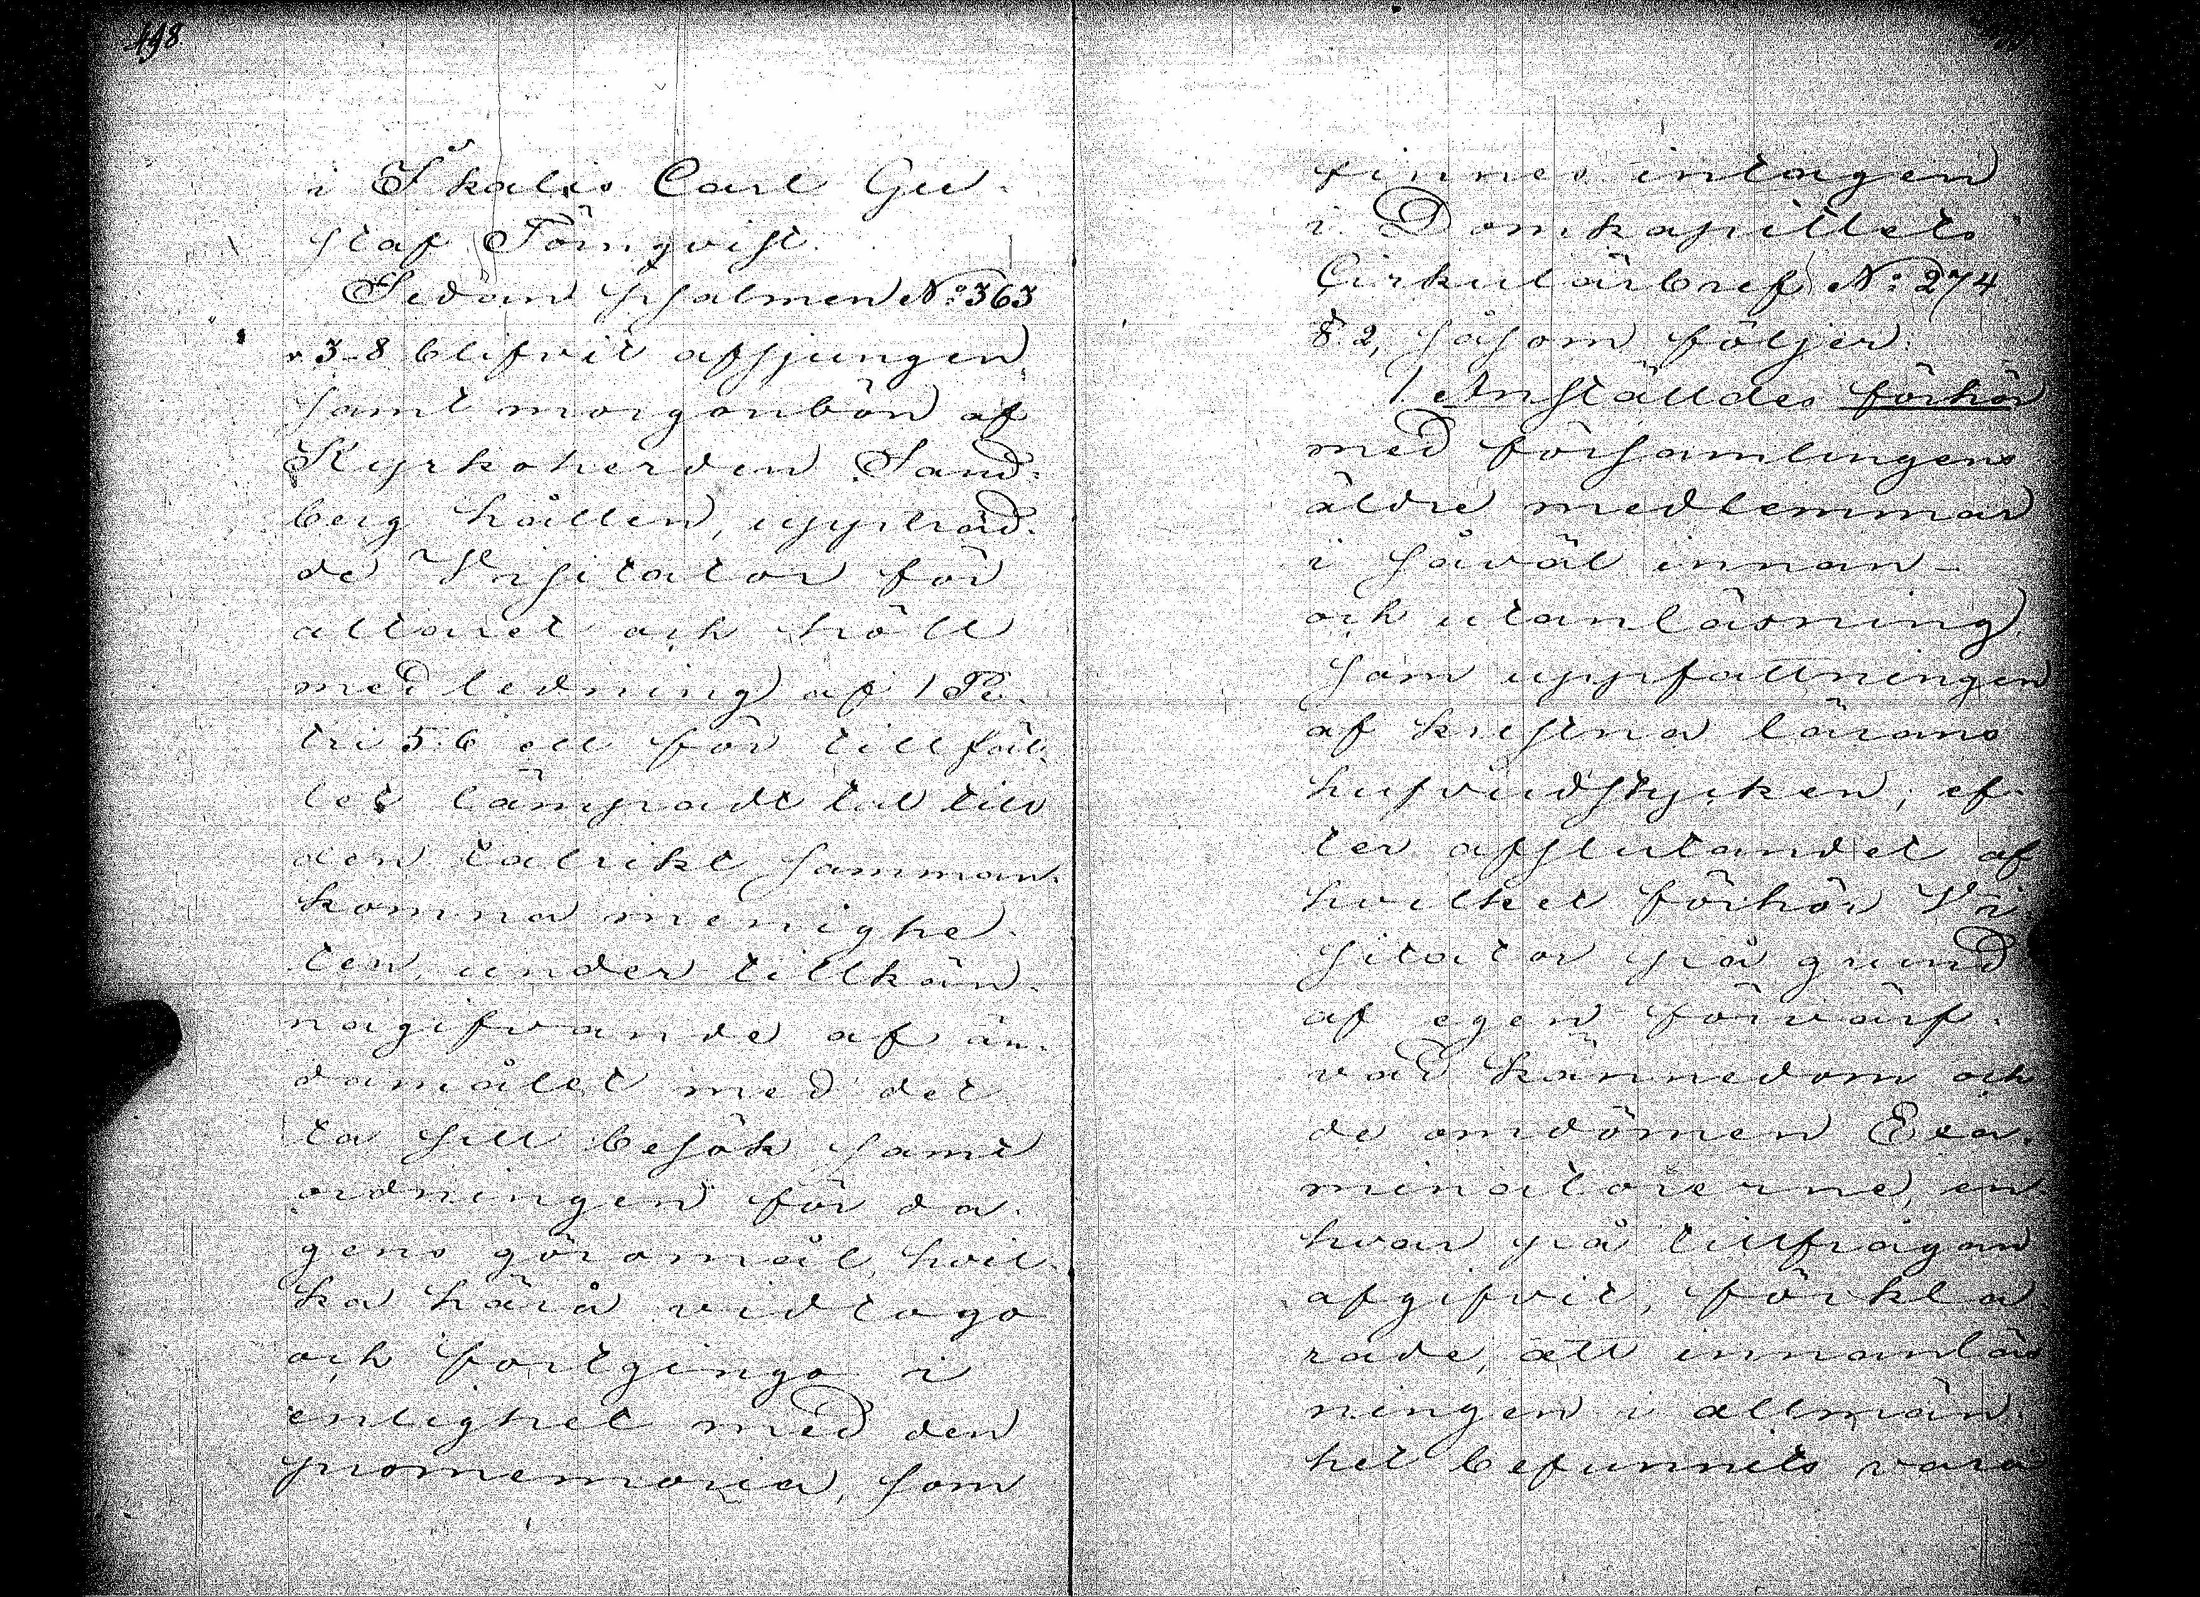 498
i Skalis Carl Gu-
staf Törnqvist.
Sedan psalmen No: 363
v 3-8 blifvit afsjungen
samt morgonbön af
Kyrkoherden Sand-
berg hållen, uppträd-
de Visitator för
altaret och höll
med ledning af 1 Pe-
tri 5:6 ett för tillfäl-
let lämpadt tal till
den talrikt samman-
komna menighe-
ten, under tillkän-
nagifvande af än-
damålet med det-
ta sitt besök samt
ordningen för da-
gens göromål, hvil-
ka härå vidtogo
och fortgingo i
enlighet med den
promemoria, som
finnes intagen
i Domkapitlets
Cirkulärbref No: 274
§. 2, såsom följer:
1 Anställdes förhör
med församlingens
äldre medlemmar
i såväl innan-
och utanläsning,
som uppfattningen
af kristna lärans
hufvudstycken; ef-
ter afslutandet af
hvilket förhör Vi-
sitator på grund
af egen förvärf-
vad kännedom och
de omdömen Exa-
minatorerne, en-
hvar på tillfrågan
afgifvit, förkla-
rade, att innanläs-
ningen i allmän-
het befunnits vara